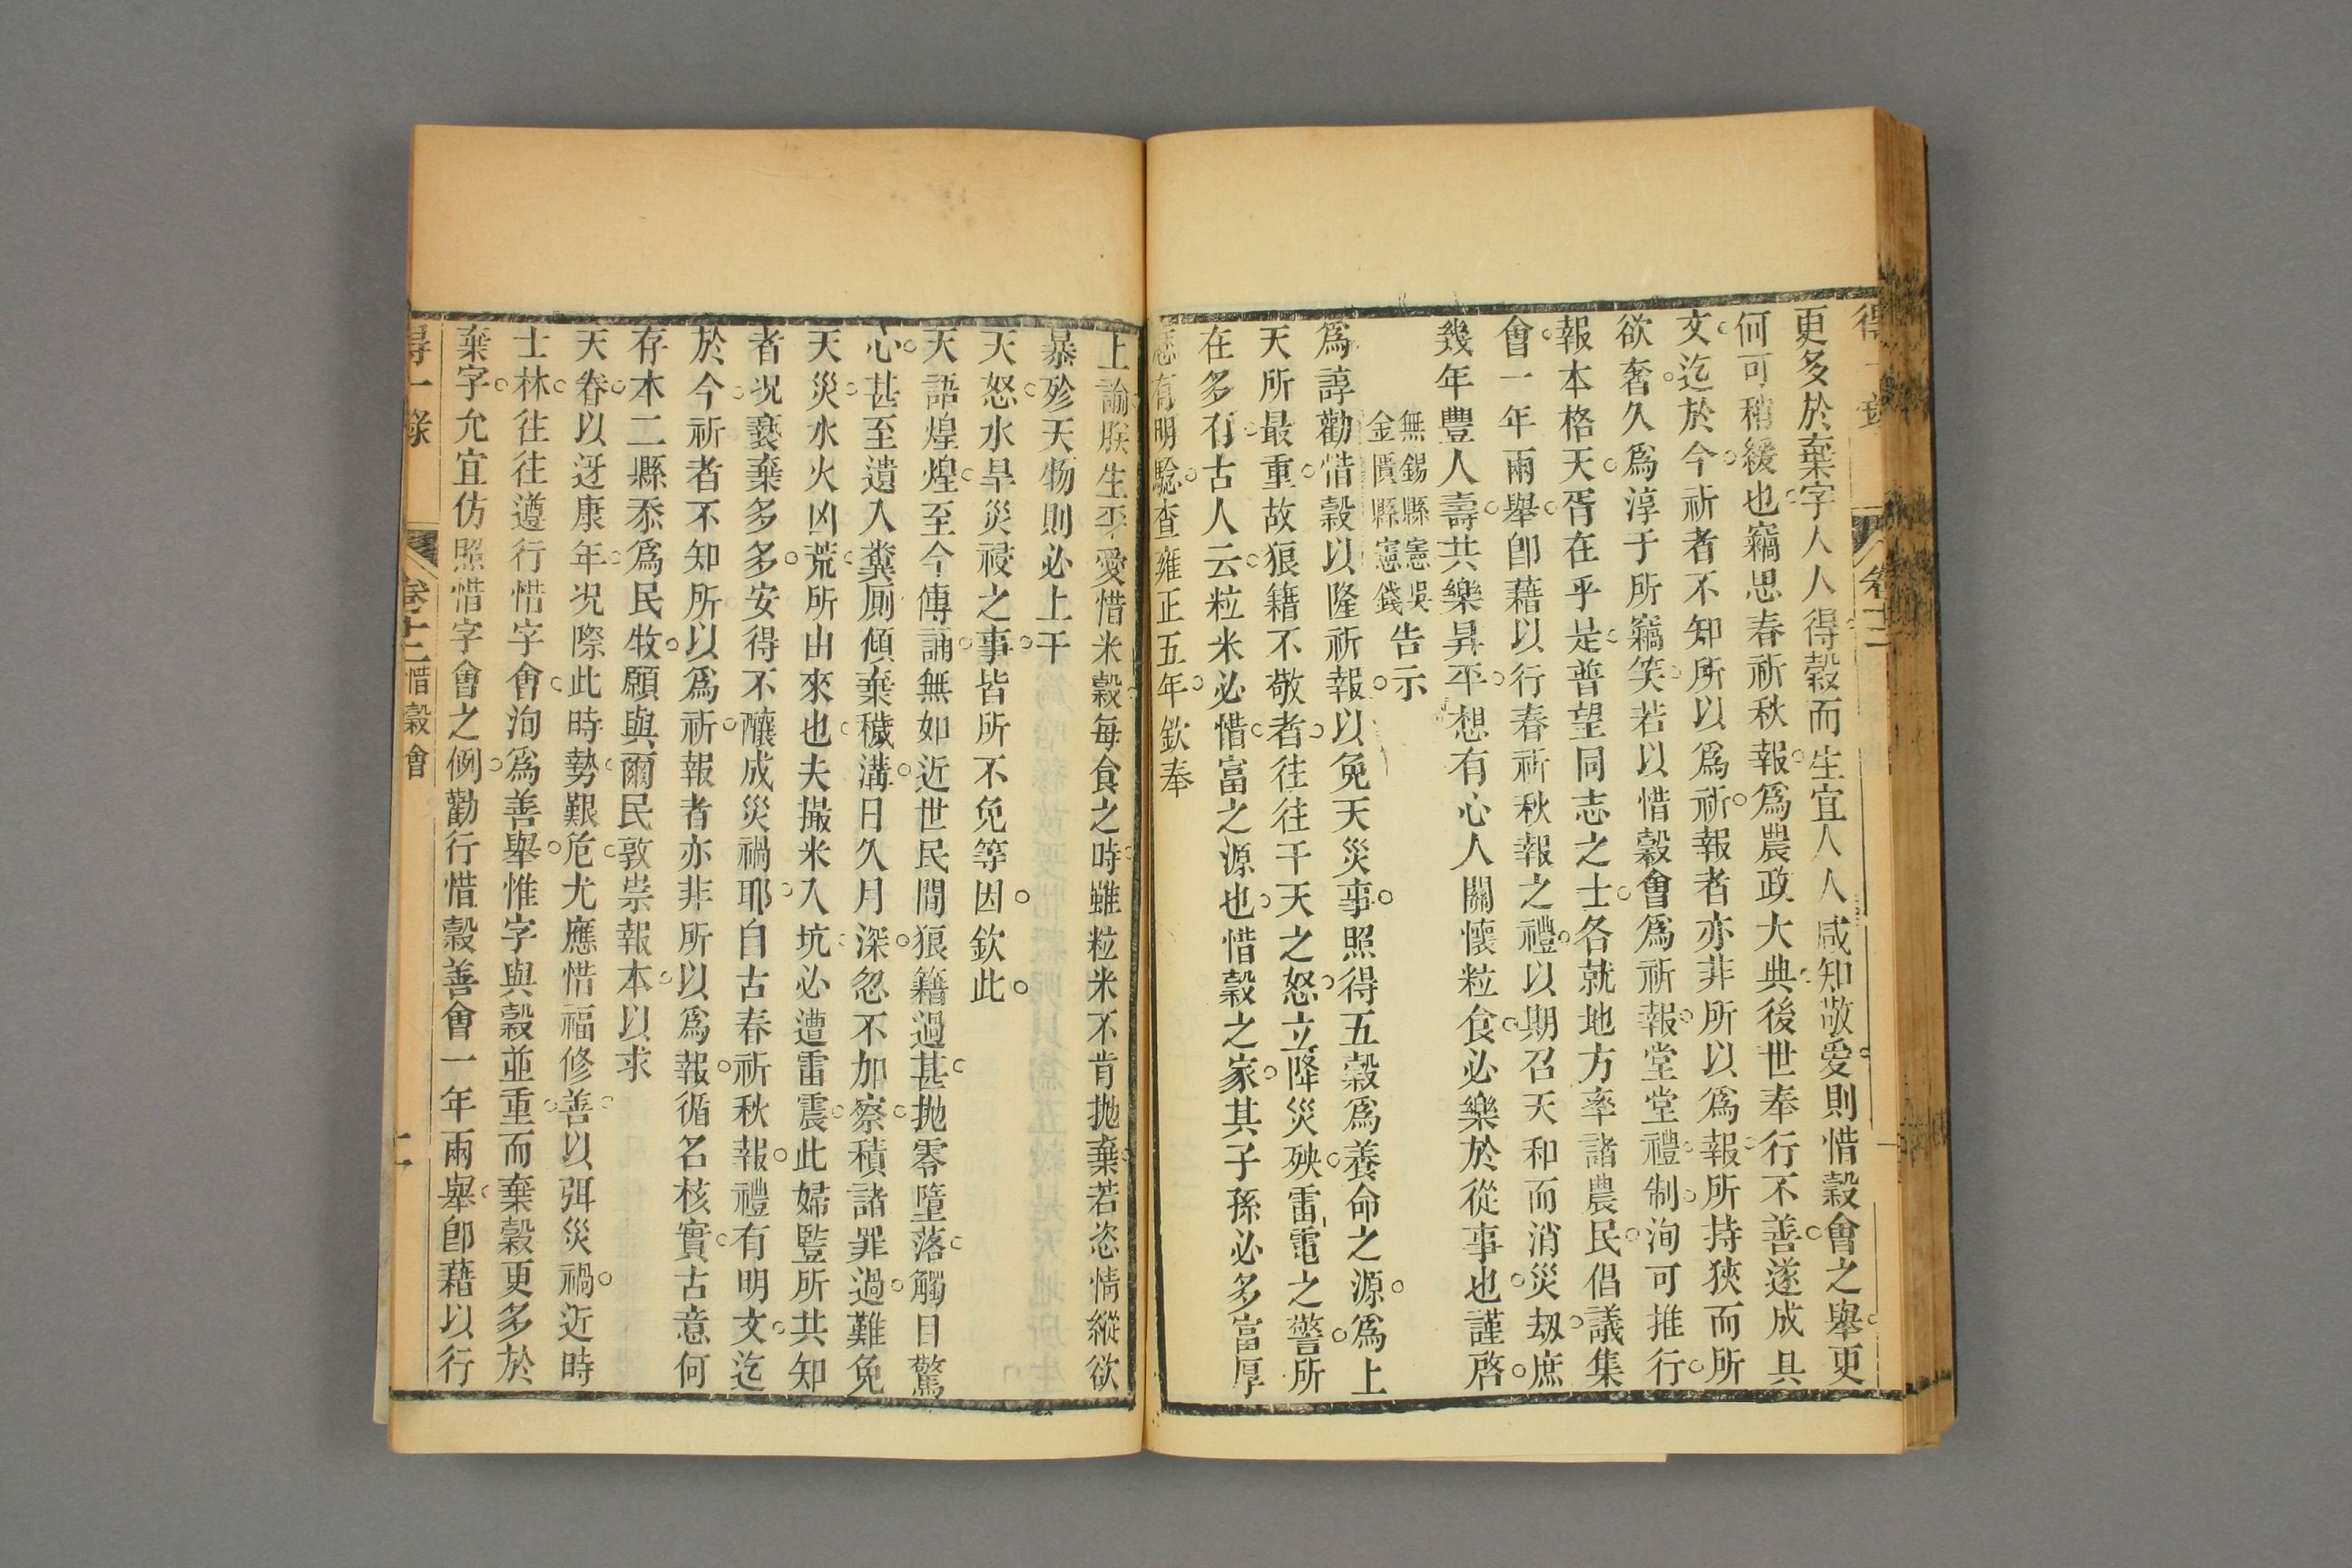 得一錄
卷十二
更多於棄字人人得穀而生宜人人咸知敬愛則惜穀會之舉更
何可稍緩也竊思春祈秋報爲農政大典後世奉行不善遂成具
文迄於今祈者不知所以爲祈報者亦非所以爲報所持狹而所
欲奢久爲淳于所竊笑若以惜穀會爲祈報堂堂禮制洵可推行
報本格天胥在乎是普望同志之士各就地方率諸農民倡議集
會一年兩舉卽藉以行春祈秋報之禮以期召天和而消災刼庶
幾年豐人壽共樂昇平想有心人關懷粒食必樂於從事也謹啓
無錫縣憲吳
金匱縣憲錢
告示
爲諄勸惜穀以隆祈報以免天災事照得五穀爲養命之源爲上
天所最重故狼籍不敬者往往干天之怒立降災殃雷電之警所
在多有古人云粒米必惜富之源也惜穀之家其子孫必多富厚
歷有明驗查雍正五年欽奉
上諭朕生平愛惜米穀每食之時雖粒米不肯拋棄若恣情縱欲
暴殄天物則必上干
天怒水旱災祲之事皆所不免等因欽此
天語煌煌至今傳誦無如近世民間狼籍過甚拋零墮落觸目驚
心甚至遺入糞厠傾棄穢溝日久月深忽不加察積諸罪過難免
天災水火凶荒所由來也夫撮米入坑必遭雷震此婦豎所共知
者况褻棄多多安得不釀成災禍耶自古春祈秋報禮有明文迄
於今祈者不知所以爲祈報者亦非所以爲報循名核實古意何
存本二縣忝爲民牧願與爾民敦崇報本以求
天眷以迓康年况際此時勢艱危尤應惜福修善以弭災禍近時
士林往往遵行惜字會洵爲善舉惟字與穀並重而棄穀更多於
棄字允宜仿照惜字會之例勸行惜穀善會一年兩舉卽藉以行
得一錄
卷十二惜穀會
二